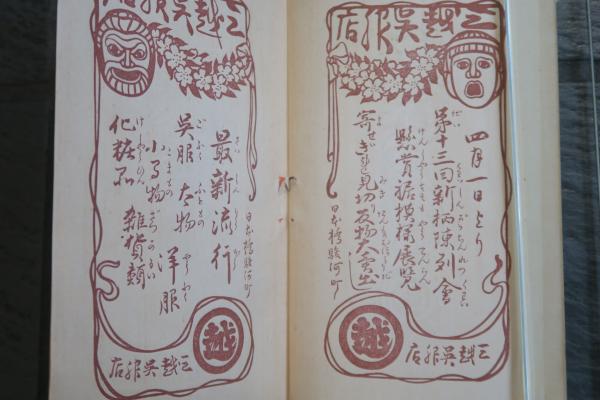 三越呉服店
四月一日より
第十三回新柄陳列會
懸賞裾模様展覧
寄せぎれ見切反物大賣出し
日本橋駿河町
越
三越呉服店
三越呉服店
日本橋駿河町
最新流行
呉服 太物 洋服
小間物
化粧品 雑貨類
越
三越呉服店